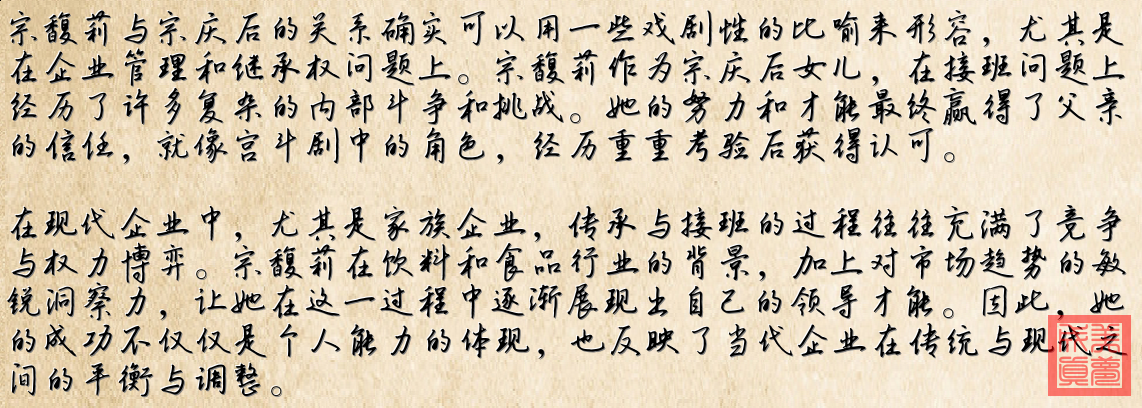 宗馥莉与宗庆后的关系确实可以用一些戏剧性的比喻来形容，尤其是
在企业管理和继承权问题上。宗馥莉作为宗庆后女儿，在接班问题上
经历了许多复杂的内部斗争和挑战。她的努力和才能最终赢得了父亲
的信任，就像宫斗剧中的角色，经历重重考验后获得认可。
在现代企业中，尤其是家族企业，传承与接班的过程往往充满了竞争
与权力博弈。宗馥莉在饮料和食品行业的背景，加上对市场趋势的敏
锐洞察力，让她在这一过程中逐渐展现出自己的领导才能。因此，她
的成功不仅仅是个人能力的体现，也反映了当代企业在传统与现代之
间的平衡与调整。